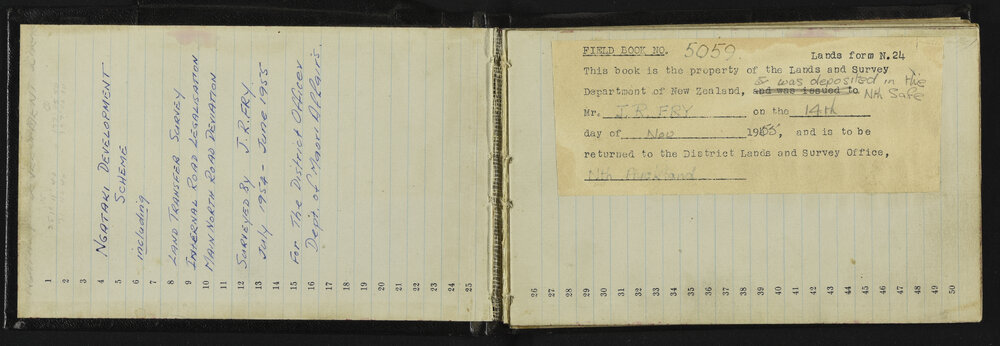 1
2
3
4 NGATAKI DEVELOPMENT
5 SCHEME
6 including
7
8 LAND TRANSFER SURVEY
9 INTERNAL ROAD LEGALISATION
10 MAIN NORTH ROAD DEVIATION
11
12 SURVEYED BY J.R.FRY.
13 JULY 1954 - JUNE 1955
14
15 For The District Officer
16 Dept. of Maori Affairs.
17
18
19
20
21
22
23
24
25
FIELD BOOK NO. 5059
Lands form N.24
This book is the property of the Lands and Survey
& was deposited in the
Department of New Zealand, and was issued to Nth Safe
Mr. J.R.FRY on the 14th
day of Nov 1955, and is to be
returned to the District Lands and Survey Office,
Nth Auckland
26
27
28
29
30
31
32
33
34
35
36
37
38
39
40
41
42
43
44
45
46
47
48
49
50